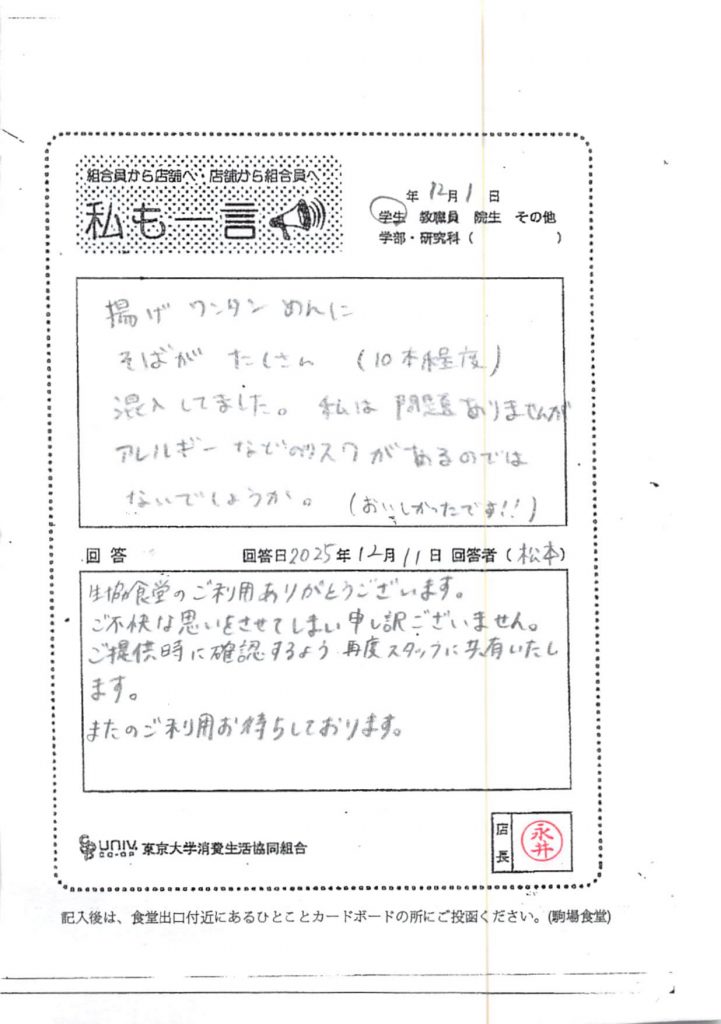 組合員から店舗へ・店舗から組合員へ
私も一言
年 12月 1日
学生 教職員 院生 その他
学部・研究科（ ）
揚げワンタンめんに
そばが たくさん （10本程度）
混入してました。 私は 問題ありませんが
アレルギーなどのリスクがあるのでは
ないでしょうか。 （おいしかったです!!）
回答 回答日2025年12月11日 回答者（松本）
生協食堂のご利用ありがとうございます。
ご不快な思いをさせてしまい申し訳ございません。
ご提供時に確認するよう再度スタッフに共有いたし
ます。
またのご利用お待ちしております。
UNIV. CO-OP 東京大学消費生活協同組合
店長 永井
記入後は、食堂出口付近にあるひとことカードボードの所にご投函ください。(駒場食堂)